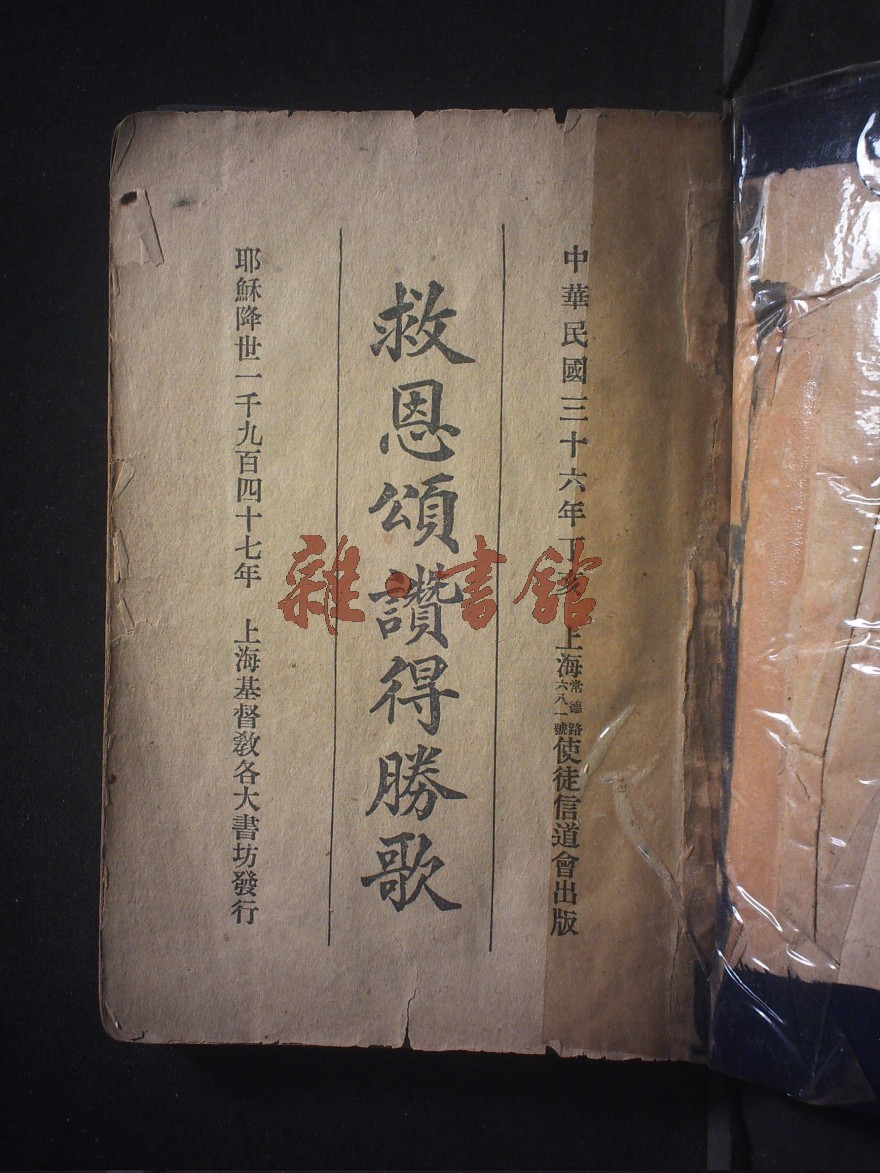 中華民國三十六年丁亥 上海常德路六八一號使徒信道會出版
救恩頌讚得勝歌
耶穌降世一千九百四十七年 上海基督教各大書坊發行
雜·書館